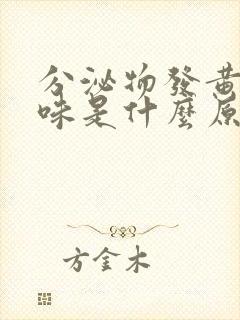 分泌物發黃
味是什麼原
方金木